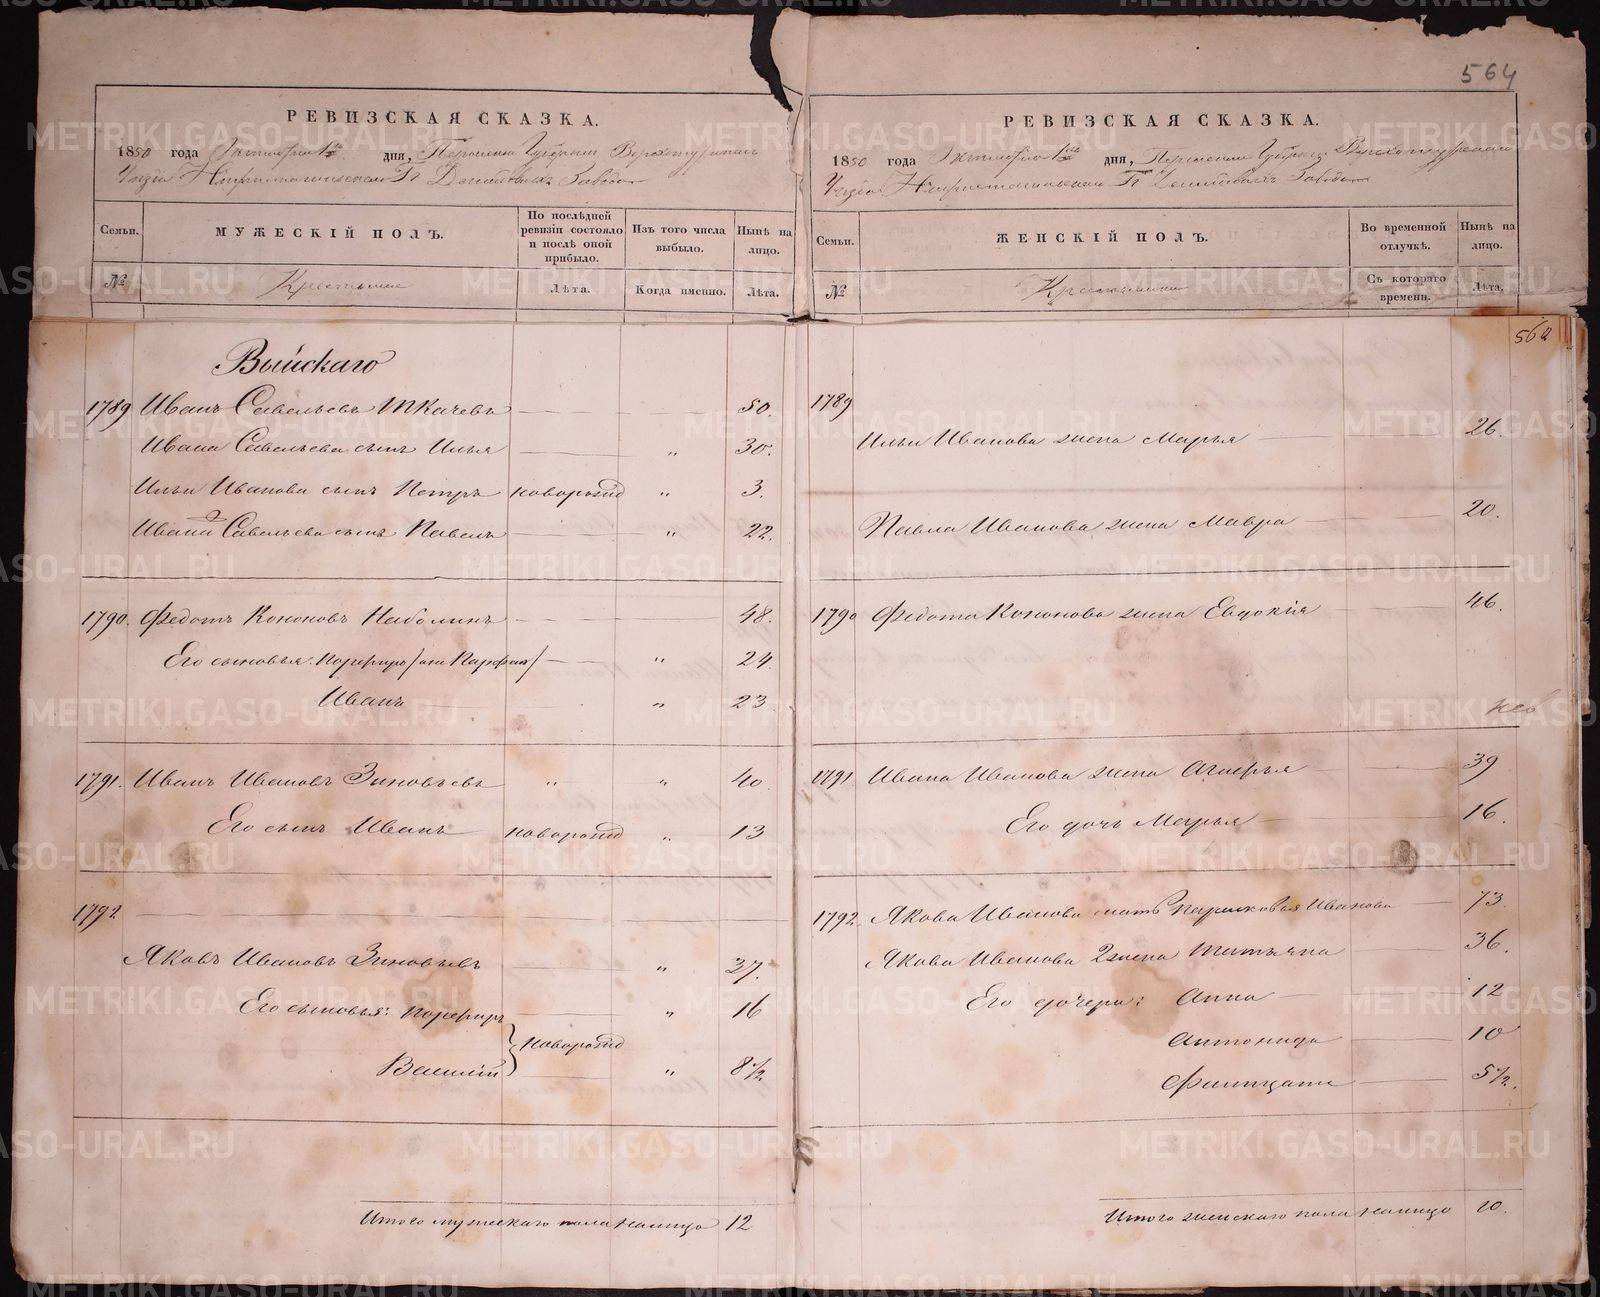 564
РЕВИЗСКАЯ СКАЗКА.
1850 года Октября 1го дня, Пермской Губернии Верхотурскаго
Уезда Нижнетагильскаго Гг Демидовыхъ Завода
Семьи.
МУЖЕСКІЙ ПОЛЪ.
По послѣдней ревизіи состояло и послѣ оной прибыло.
Изъ того числа выбыло.
Нынѣ на лицо.
№
Крестьяне
Лѣта.
Когда именно.
Лѣта.
Выйскаго
1789 Иванъ Савельевъ Ткачевъ 50.
Ивана Савельева сынъ Илья " 30.
Ильи Иванова сынъ Петръ новорожд " 3.
Ивана Савельева 2 сынъ Павелъ " 22.
1790. Федотъ Кононовъ Наболинъ 48.
Его сыновья: Порфиръ /онъ Парфенъ/ " 24
Иванъ " 23
1791. Иванъ Ивановъ Зиновьевъ " " 40
Его сынъ Иванъ новорожд " 13
1792
Яковъ Ивановъ Зиновьевъ " 37.
Его сыновья: Порфиръ " 16
новорожд
Василій " 8 1/2
Итого мужескаго пола налицо 12
РЕВИЗСКАЯ СКАЗКА.
1850 года Октября 1го дня, Пермской Губерн: Верхотурскаго
Уезда Нижнетагильскаго Гг Демидовыхъ Завода
Семьи.
ЖЕНСКІЙ ПОЛЪ.
Во временной отлучкѣ.
Нынѣ на лицо.
№
Крестьянки
Съ котораго времени.
Лѣта.
562
1789
Ильи Иванова жена Марья 26.
Павла Иванова жена Мавра 20.
1790 Федота Кононова жена Евдокія 46.
1791. Ивана Иванова жена Агафья 39
Его дочь Марья 16.
1792. Якова Иванова мать Парасковья Иванова 73.
Якова Иванова 2 жена Татьяна 36.
Его дочери: Анна 12
Антонида 10
Фелицата 5 1/2.
Итого женскаго пола налицо 10.
METRIKI.GASO-URAL.RU